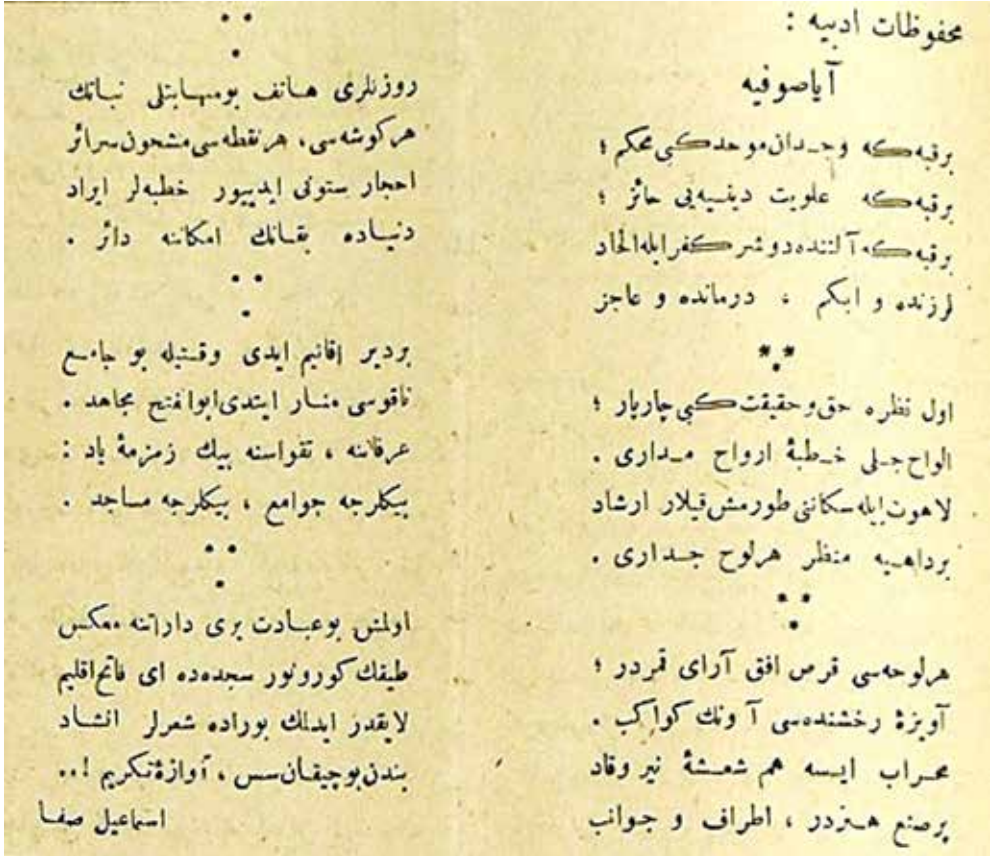 محفوظات ادبیه :
آیاصوفیه
برقبه‌که وجـدان موحد کبی محکم ؛
برقبه‌که علویت دینـیه‌یی حائز ؛
برقبه‌که آلتنده دوشر کفر ایله الحاد
لرزنده و ابکم ، درمانده و عاجز
اول نظره حق و حقیقت کبی چاریار ؛
الواح جلی خـطبهٔ ارواح مـداری .
لاهوت ایله سکاننی طورمش قیلار ارشاد
برداهـیه منظر هرلوح جـداری .
هرلوحه‌سی قرص افق آرای قمردر ؛
آویزهٔ رخشنده‌سی آ ونك کواکب .
محراب ایسه هم شعشهٔ نیر وقاد
برصنع هـنردر ، اطراف و جوانب
روزنلری هاتف بومهابتلی نباتك
هرکوشه‌سی ، هرنقطه‌سی مشحون سرائر
احجار ستونی ایدییور خطبه‌لر ایراد
دنیاده بقانك امکاننه دائر .
بردیر اقانیم ایدی وقتیله بو جامع
ناقوسی منار ایتدی ابوالفتح مجاهد .
عرفاننه ، تقواسنه بیك زمزمهٔ یاد :
بیکلرجه جوامع ، بیکلرجه مساجد .
اولمش بوعبادت یری داراتنه معکس
طیفك کورونور سجده‌ده ای فاتح اقلیم
لایقدر ایدلك بوراده شعرلر انشاد
بندن بوچیقان سس ، آوازهٔ تکریم !..
اسماعیل صفا